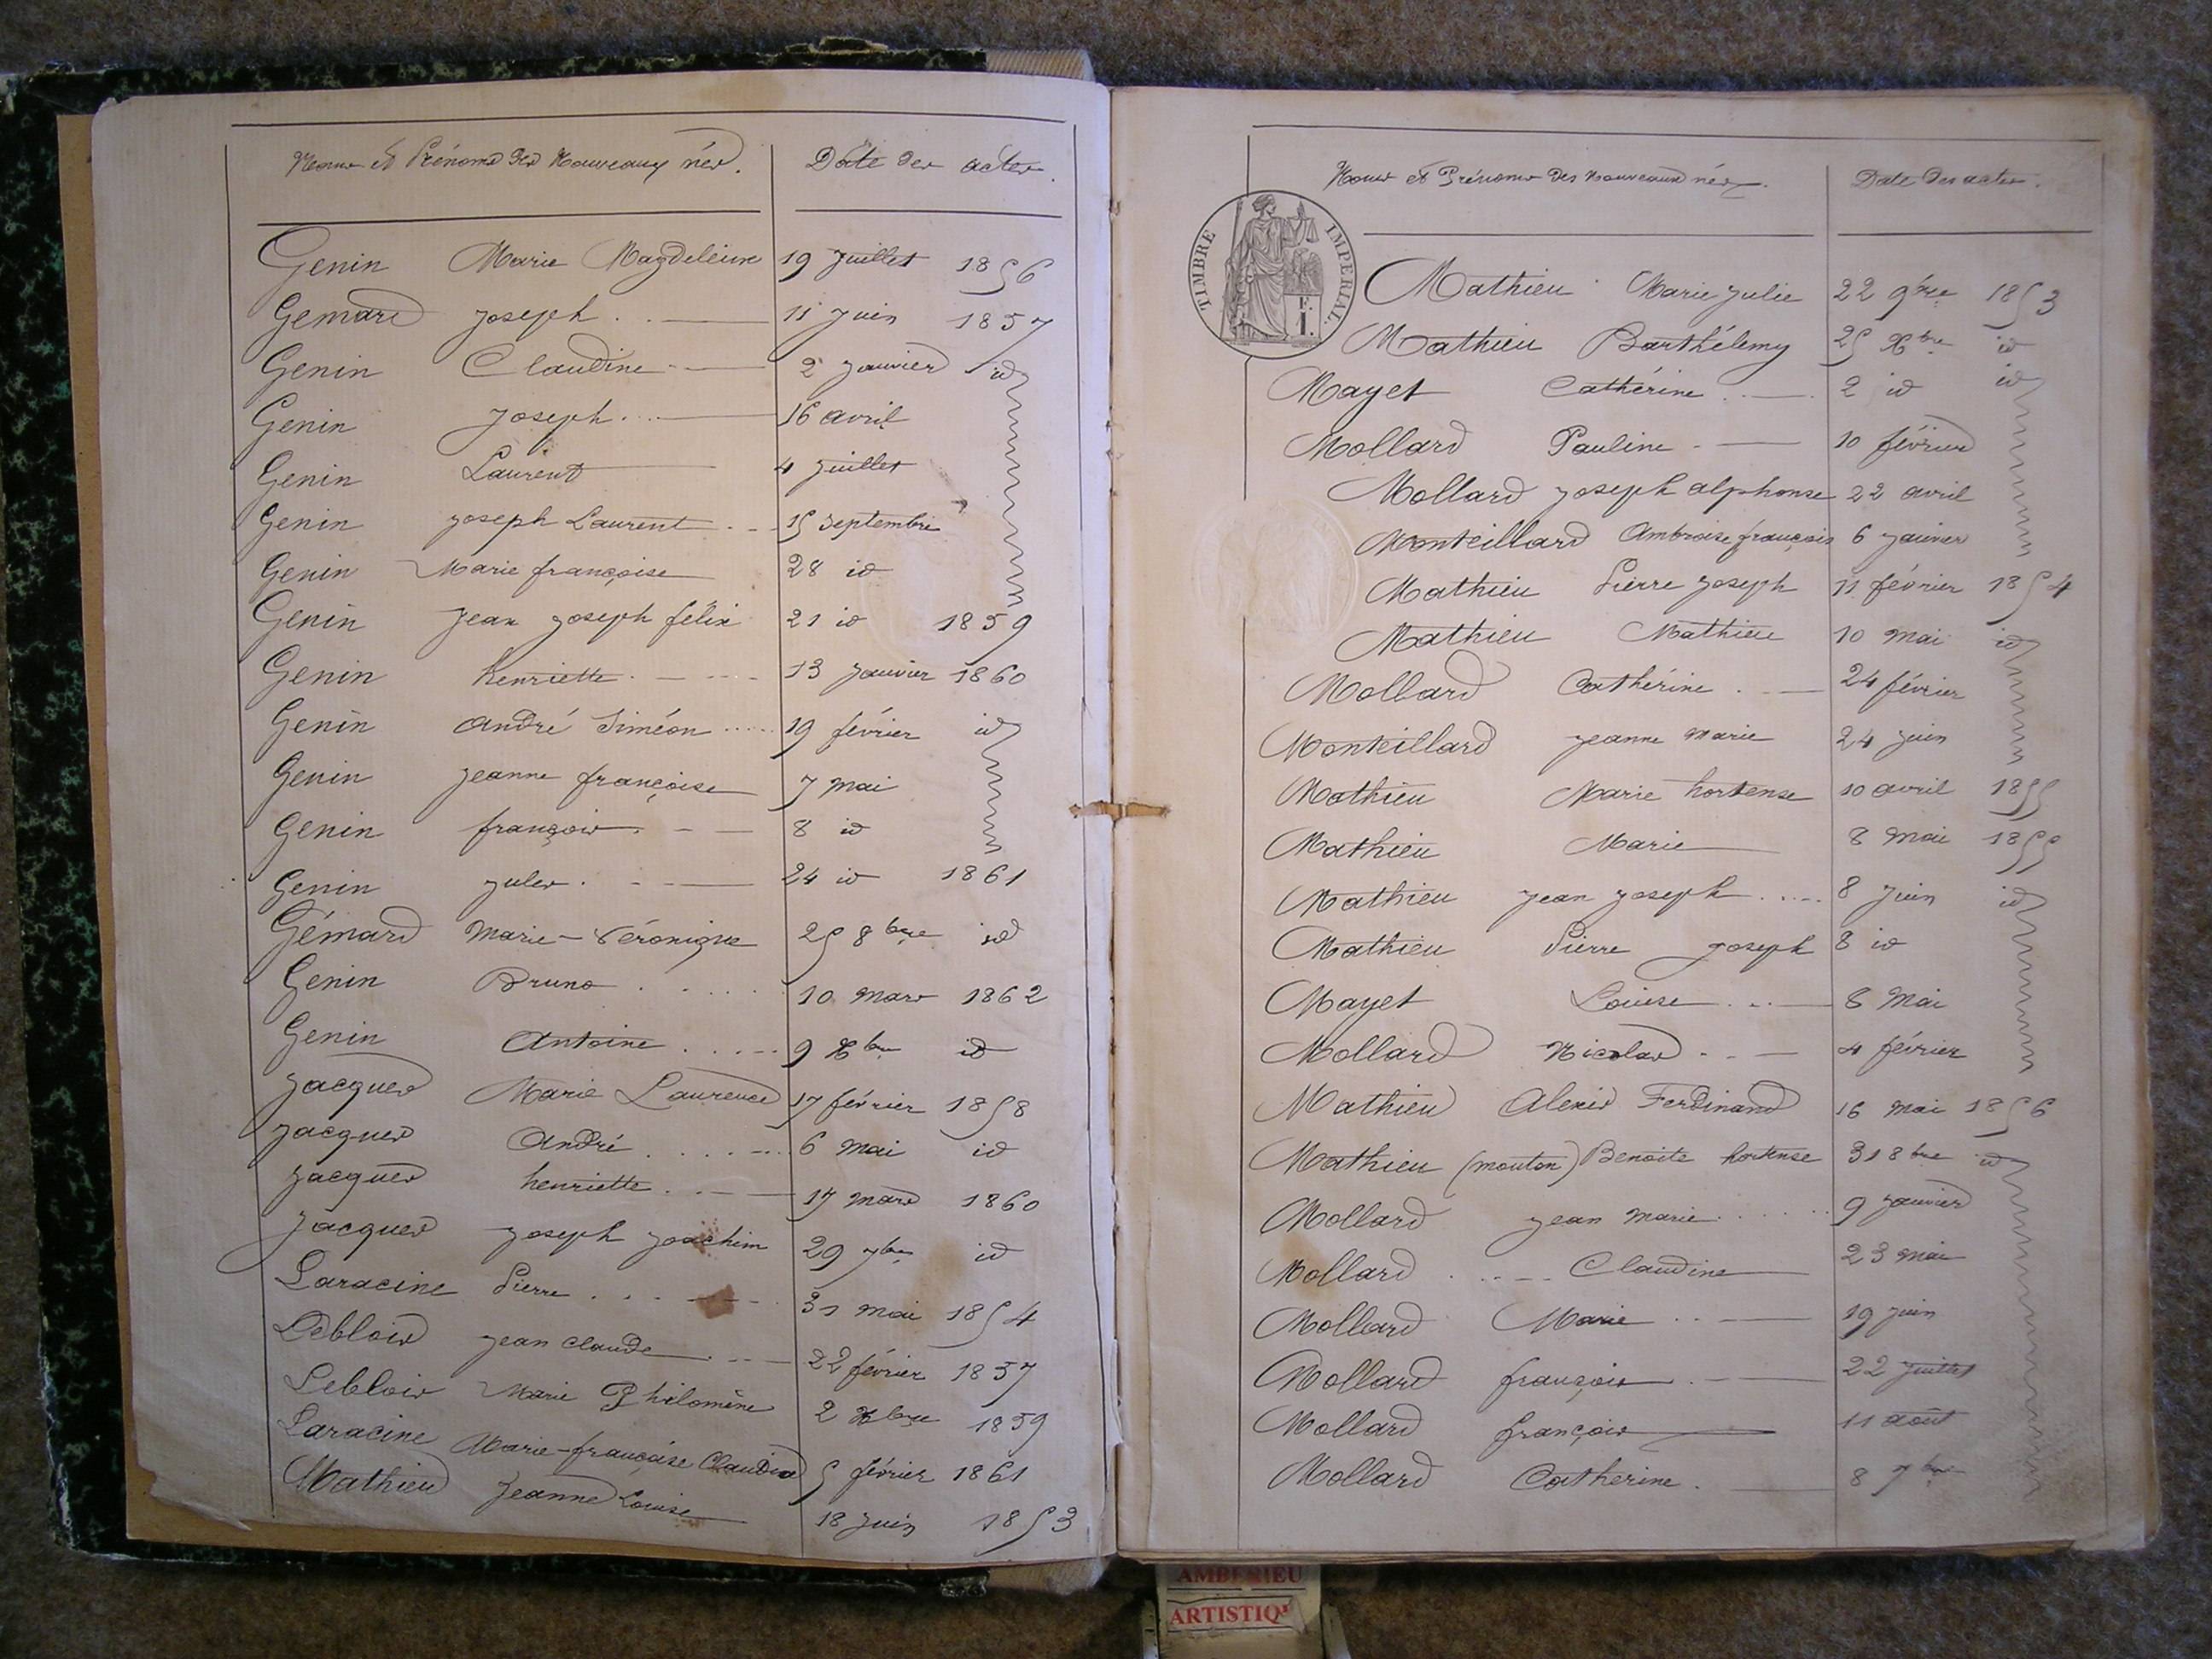 Noms et Prénoms des Nouveaux nés. Date des actes.
Genin Marie Magdeleine 19 juillet 1856
Gemard joseph 11 juin 1857
Genin Claudine 2 janvier id
Genin joseph 16 avril
Genin Laurent 4 juillet
Genin joseph Laurent 15 septembre
Genin Marie françoise 28 id
Genin jean joseph félix 21 id 1859
Genin henriette 13 janvier 1860
Genin andré Siméon 19 février id
Genin jeanne françoise 7 mai
Genin françois 8 id
Genin jules 24 id 1861
Gémard Marie-Véronique 25 8bre id
Genin Bruno 10 mars 1862
Genin Antoine 9 Xbre id
jacques Marie Laurence 17 février 1858
jacques André 6 mai id
jacques henriette 17 mars 1860
jacques joseph joachim 29 7bre id
Laracine Pierre 31 mai 1854
Leblois jean claude 22 février 1857
Leblois Marie Philomène 2 Xbre 1859
Laracine Marie-françoise Claudine 5 février 1861
Mathieu Jeanne Louise 18 juin 1853
Noms et Prénoms des nouveaux nés. Date des actes.
TIMBRE IMPERIAL.
E. I.
Mathieu Marie julie 22 9bre 1853
Mathieu Barthélemy 25 Xbre id
Mayet Cathérine 2 id id
Mollard Pauline 10 février
Mollard joseph alphonse 22 avril
Monteillard Ambroise françois 6 janvier
Mathieu Pierre joseph 11 février 1854
Mathieu Mathieu 10 mai id
Mollard Cathérine 24 février
Monteillard jeanne marie 24 juin
Mathieu Marie hortense 10 avril 1855
Mathieu Marie 8 mai 1855
Mathieu jean joseph 8 juin id
Mathieu Pierre joseph 8 id
Mayet Louise 8 mai
Mollard Nicolas 4 février
Mathieu Alexis Ferdinand 16 mai 1856
Mathieu (mouton) Benoite hortense 31 8bre id
Mollard jean marie 9 janvier
Mollard Claudine 23 mai
Mollard Marie 19 juin
Mollard françois 22 juillet
Mollard françois 11 août
Mollard Catherine 8 7bre
AMBERIEU
ARTISTIQ